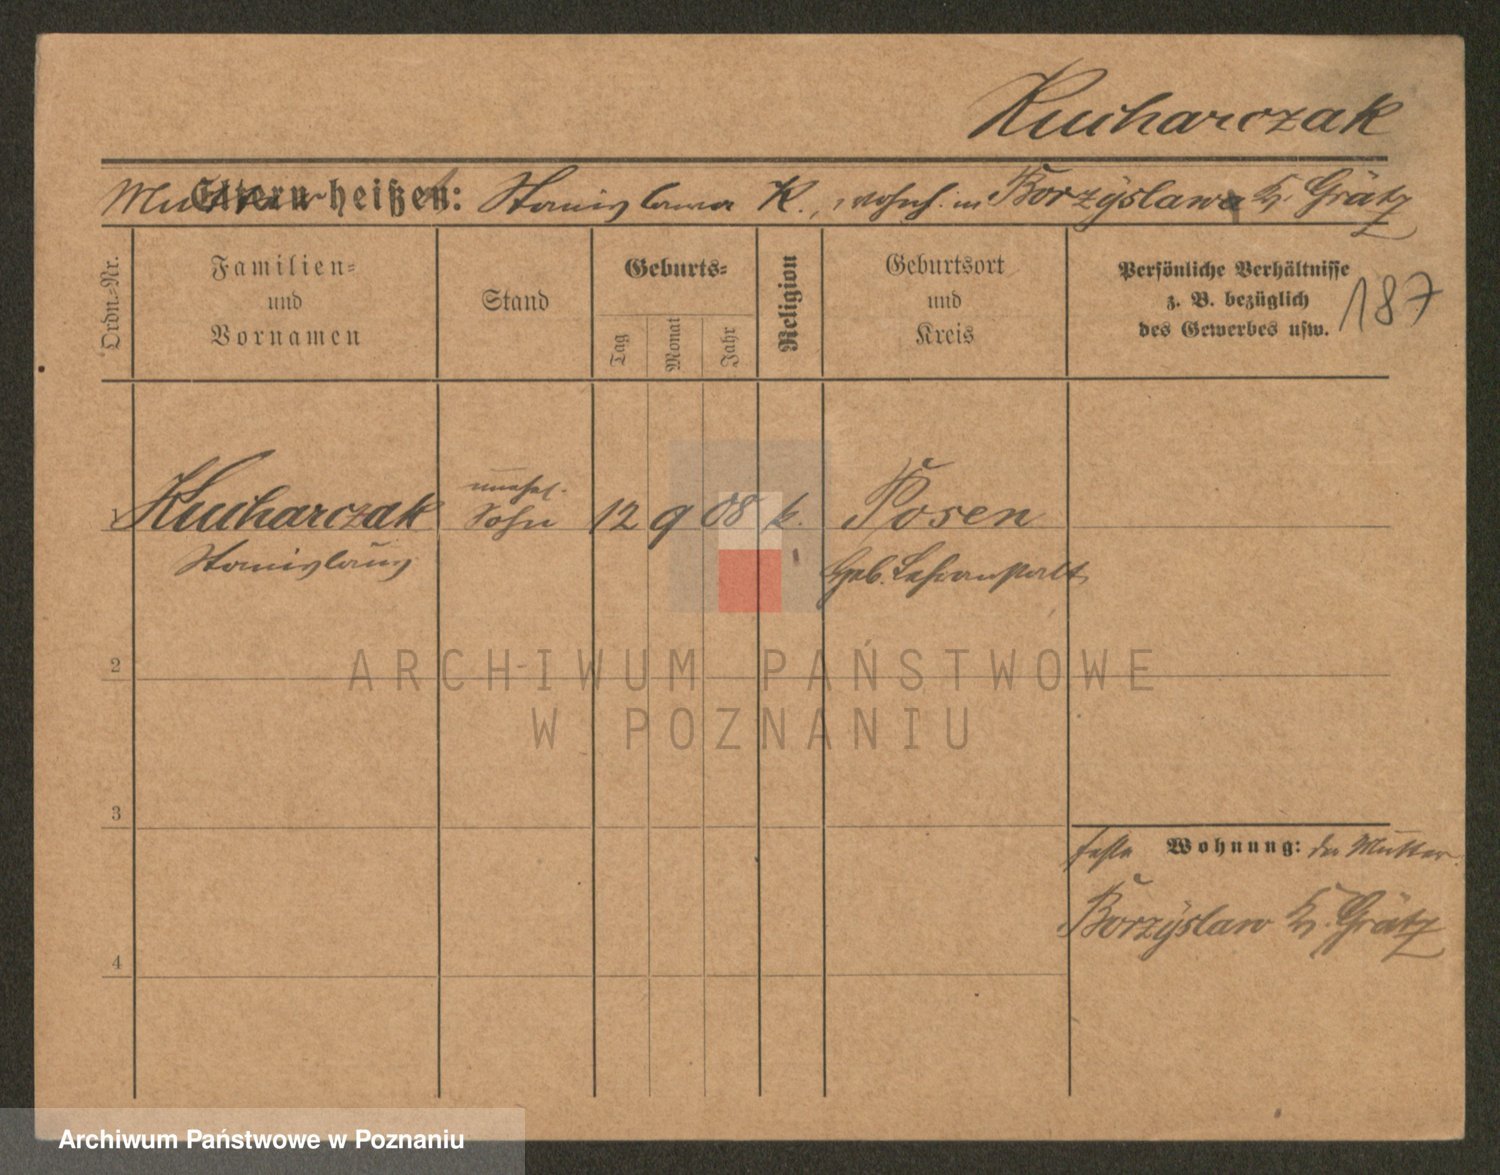 Kucharczak
Mutter Eltern heißen: Stanislawa K., wohnh. in Borzÿslaw Kr. Grätz
Ordn.-Nr.
Familien-
und
Vornamen
Stand
Geburts-
Tag
Monat
Jahr
Religion
Geburtsort
und
Kreis
Persönliche Verhältnisse
z. B. bezüglich
des Gewerbes usw.
187
1
Kucharczak
Stanislaus
unehel.
Sohn
12
9
08
k.
Posen
Heb. Lehranstalt
2
3
4
feste Wohnung: der Mutter.
Borzÿslaw Kr. Grätz
ARCHIWUM PAŃSTWOWE
W POZNANIU
Archiwum Państwowe w Poznaniu